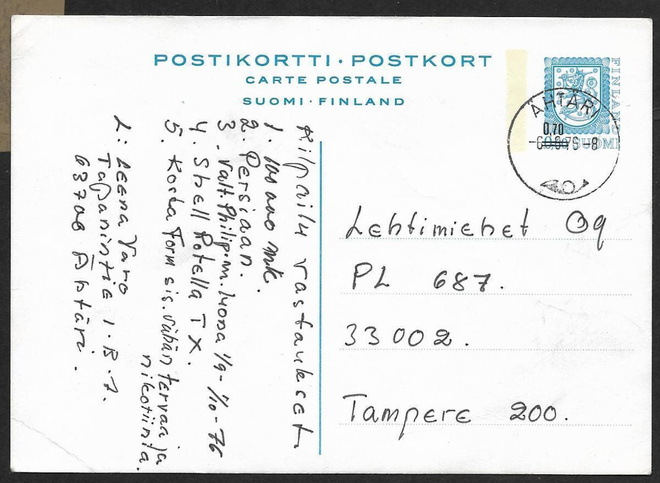 POSTIKORTTI · POSTKORT
CARTE POSTALE
SUOMI · FINLAND
FINLAND
SUOMI
ÄHTÄRI
0,70
76-8
Lehtimiehet Oy
PL 687.
33002.
Tampere 200.
Kilpailu vastaukset.
1. mk.
2. Persiaan.
3. Valt. Philip.m. 1/9-1/10-76
4. Shell Rotella TX.
5. Koska Form sis. vähän tervaa ja
nikotiinia.
L: Leena Varo
Tapanintie 1.B.7.
63700 Ähtäri.